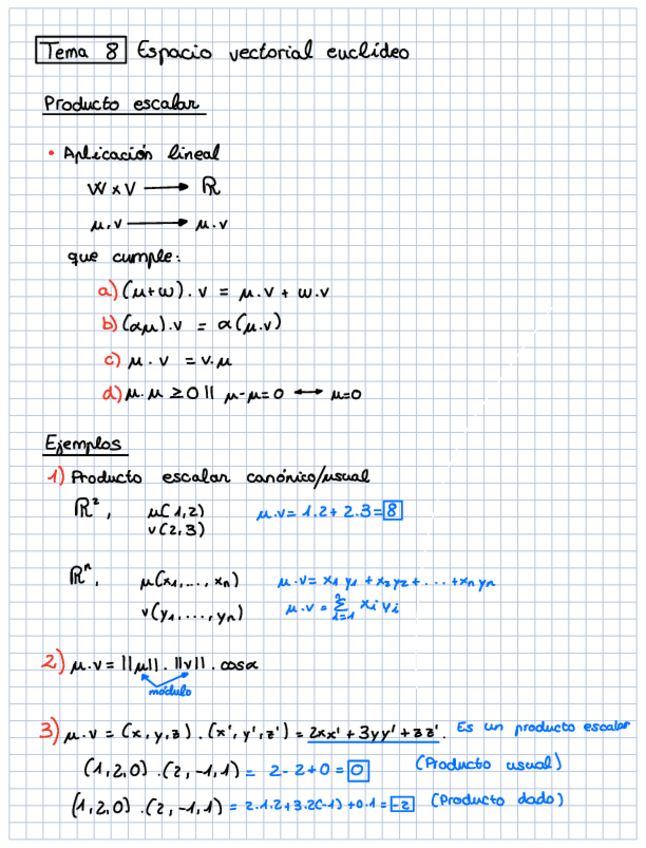 Tema 8 Espacio vectorial euclídeo
Producto escalar
• Aplicación lineal
W x V → ℝ
μ.v → μ.v
que cumple:
a) (μ+w).v = μ.v + w.v
b) (αμ).v = α(μ.v)
c) μ.v = v.μ
d) μ.μ ≥ 0 || μ-μ=0 ↔ μ=0
Ejemplos
1) Producto escalar canónico/usual
ℝ², μ(1,2) μ.v = 1.2 + 2.3 = 8
v(2,3)
ℝⁿ, μ(x₁,..., xₙ) μ.v = x₁ y₁ + x₂y₂ + ... + xₙ yₙ
v(y₁,...,yₙ) μ.v = Σᵢ₌₁ⁿ xᵢ yᵢ
2) μ.v = ||μ|| . ||v|| . cosα
módulo
3) μ.v = (x,y,z) . (x',y',z') = 2xx' + 3yy' + zz'. Es un producto escalar
(1,2,0) . (2,-1,1) = 2-2+0 = 0 (Producto usual)
(1,2,0) . (2,-1,1) = 2.1.2+3.2(-1)+0.1 = -2 (Producto dado)